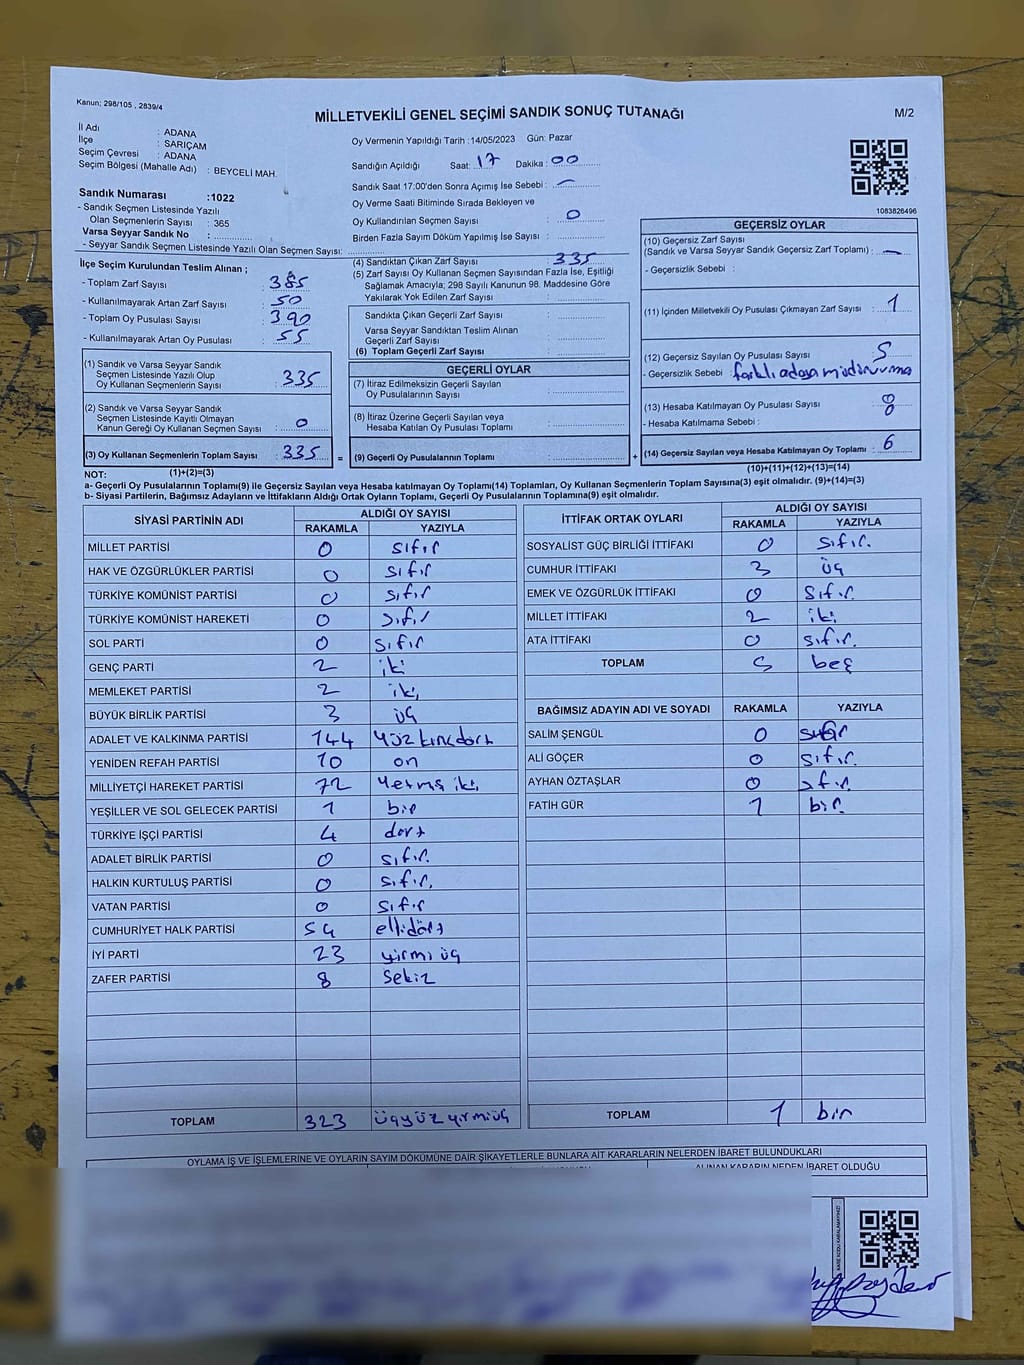 Kanun; 298/105 , 2839/4
MİLLETVEKİLİ GENEL SEÇİMİ SANDIK SONUÇ TUTANAĞI
M/2
İl Adı : ADANA
İlçe : SARIÇAM
Seçim Çevresi : ADANA
Seçim Bölgesi (Mahalle Adı) : BEYCELİ MAH.
Sandık Numarası :1022
- Sandık Seçmen Listesinde Yazılı
Olan Seçmenlerin Sayısı : 365
Varsa Seyyar Sandık No :
- Seyyar Sandık Seçmen Listesinde Yazılı Olan Seçmen Sayısı:
İlçe Seçim Kurulundan Teslim Alınan ;
- Toplam Zarf Sayısı : 385
- Kullanılmayarak Artan Zarf Sayısı : 50
- Toplam Oy Pusulası Sayısı : 390
- Kullanılmayarak Artan Oy Pusulası : 55
(1) Sandık ve Varsa Seyyar Sandık
Seçmen Listesinde Yazılı Olup
Oy Kullanan Seçmenlerin Sayısı : 335
(2) Sandık ve Varsa Seyyar Sandık
Seçmen Listesinde Kayıtlı Olmayan
Kanun Gereği Oy Kullanan Seçmen Sayısı : 0
(3) Oy Kullanan Seçmenlerin Toplam Sayısı : 335
(1)+(2)=(3)
Oy Vermenin Yapıldığı Tarih :14/05/2023 Gün: Pazar
Sandığın Açıldığı Saat: 17 Dakika : 00
Sandık Saat 17:00'den Sonra Açımış İse Sebebi : –
Oy Verme Saati Bitiminde Sırada Bekleyen ve
Oy Kullandırılan Seçmen Sayısı : 0
Birden Fazla Sayım Döküm Yapılmış İse Sayısı :
(4) Sandıktan Çıkan Zarf Sayısı : 335
(5) Zarf Sayısı Oy Kullanan Seçmen Sayısından Fazla İse, Eşitliği
Sağlamak Amacıyla; 298 Sayılı Kanunun 98. Maddesine Göre
Yakılarak Yok Edilen Zarf Sayısı :
Sandıkta Çıkan Geçerli Zarf Sayısı :
Varsa Seyyar Sandıktan Teslim Alınan
Geçerli Zarf Sayısı :
(6) Toplam Geçerli Zarf Sayısı :
GEÇERLİ OYLAR
(7) İtiraz Edilmeksizin Geçerli Sayılan
Oy Pusulalarının Sayısı :
(8) İtiraz Üzerine Geçerli Sayılan veya
Hesaba Katılan Oy Pusulası Toplamı :
= (9) Geçerli Oy Pusulalarının Toplamı : +
1083826496
GEÇERSİZ OYLAR
(10) Geçersiz Zarf Sayısı
(Sandık ve Varsa Seyyar Sandık Geçersiz Zarf Toplamı) : –
- Geçersizlik Sebebi :
(11) İçinden Milletvekili Oy Pusulası Çıkmayan Zarf Sayısı : 1
(12) Geçersiz Sayılan Oy Pusulası Sayısı : 5
- Geçersizlik Sebebi : farklı adaya
(13) Hesaba Katılmayan Oy Pusulası Sayısı : 0
- Hesaba Katılmama Sebebi :
(14) Geçersiz Sayılan veya Hesaba Katılmayan Oy Toplamı : 6
(10)+(11)+(12)+(13)=(14)
NOT:
a- Geçerli Oy Pusulaların Toplamı(9) ile Geçersiz Sayılan veya Hesaba katılmayan Oy Toplamı(14) Toplamları, Oy Kullanan Seçmenlerin Toplam Sayısına(3) eşit olmalıdır. (9)+(14)=(3)
b- Siyasi Partilerin, Bağımsız Adayların ve İttifakların Aldığı Ortak Oyların Toplamı, Geçerli Oy Pusulalarının Toplamına(9) eşit olmalıdır.
SİYASİ PARTİNİN ADI ALDIĞI OY SAYISI
RAKAMLA YAZIYLA
MİLLET PARTİSİ 0 sıfır
HAK VE ÖZGÜRLÜKLER PARTİSİ 0 sıfır
TÜRKİYE KOMÜNİST PARTİSİ 0 sıfır
TÜRKİYE KOMÜNİST HAREKETİ 0 sıfır
SOL PARTİ 0 sıfır
GENÇ PARTİ 2 iki
MEMLEKET PARTİSİ 2 iki
BÜYÜK BİRLİK PARTİSİ 3 üç
ADALET VE KALKINMA PARTİSİ 144 yüzkırkdört
YENİDEN REFAH PARTİSİ 10 on
MİLLİYETÇİ HAREKET PARTİSİ 72 yetmiş iki
YEŞİLLER VE SOL GELECEK PARTİSİ 1 bir
TÜRKİYE İŞÇİ PARTİSİ 4 dört
ADALET BİRLİK PARTİSİ 0 sıfır.
HALKIN KURTULUŞ PARTİSİ 0 sıfır.
VATAN PARTİSİ 0 sıfır
CUMHURİYET HALK PARTİSİ 54 ellidört
İYİ PARTİ 23 yirmi üç
ZAFER PARTİSİ 8 sekiz
TOPLAM 323 üçyüz yirmiüç
İTTİFAK ORTAK OYLARI ALDIĞI OY SAYISI
RAKAMLA YAZIYLA
SOSYALİST GÜÇ BİRLİĞİ İTTİFAKI 0 sıfır.
CUMHUR İTTİFAKI 3 üç
EMEK VE ÖZGÜRLÜK İTTİFAKI 0 sıfır.
MİLLET İTTİFAKI 2 iki
ATA İTTİFAKI 0 sıfır.
TOPLAM 5 beş
BAĞIMSIZ ADAYIN ADI VE SOYADI RAKAMLA YAZIYLA
SALİM ŞENGÜL 0 sıfır
ALİ GÖÇER 0 sıfır.
AYHAN ÖZTAŞLAR 0 sıfır.
FATİH GÜR 1 bir.
TOPLAM 1 bir
OYLAMA İŞ VE İŞLEMLERİNE VE OYLARIN SAYIM DÖKÜMÜNE DAİR ŞİKAYETLERLE BUNLARA AİT KARARLARIN NELERDEN İBARET BULUNDUKLARI
ALINAN KARARIN NEDEN İBARET OLDUĞU